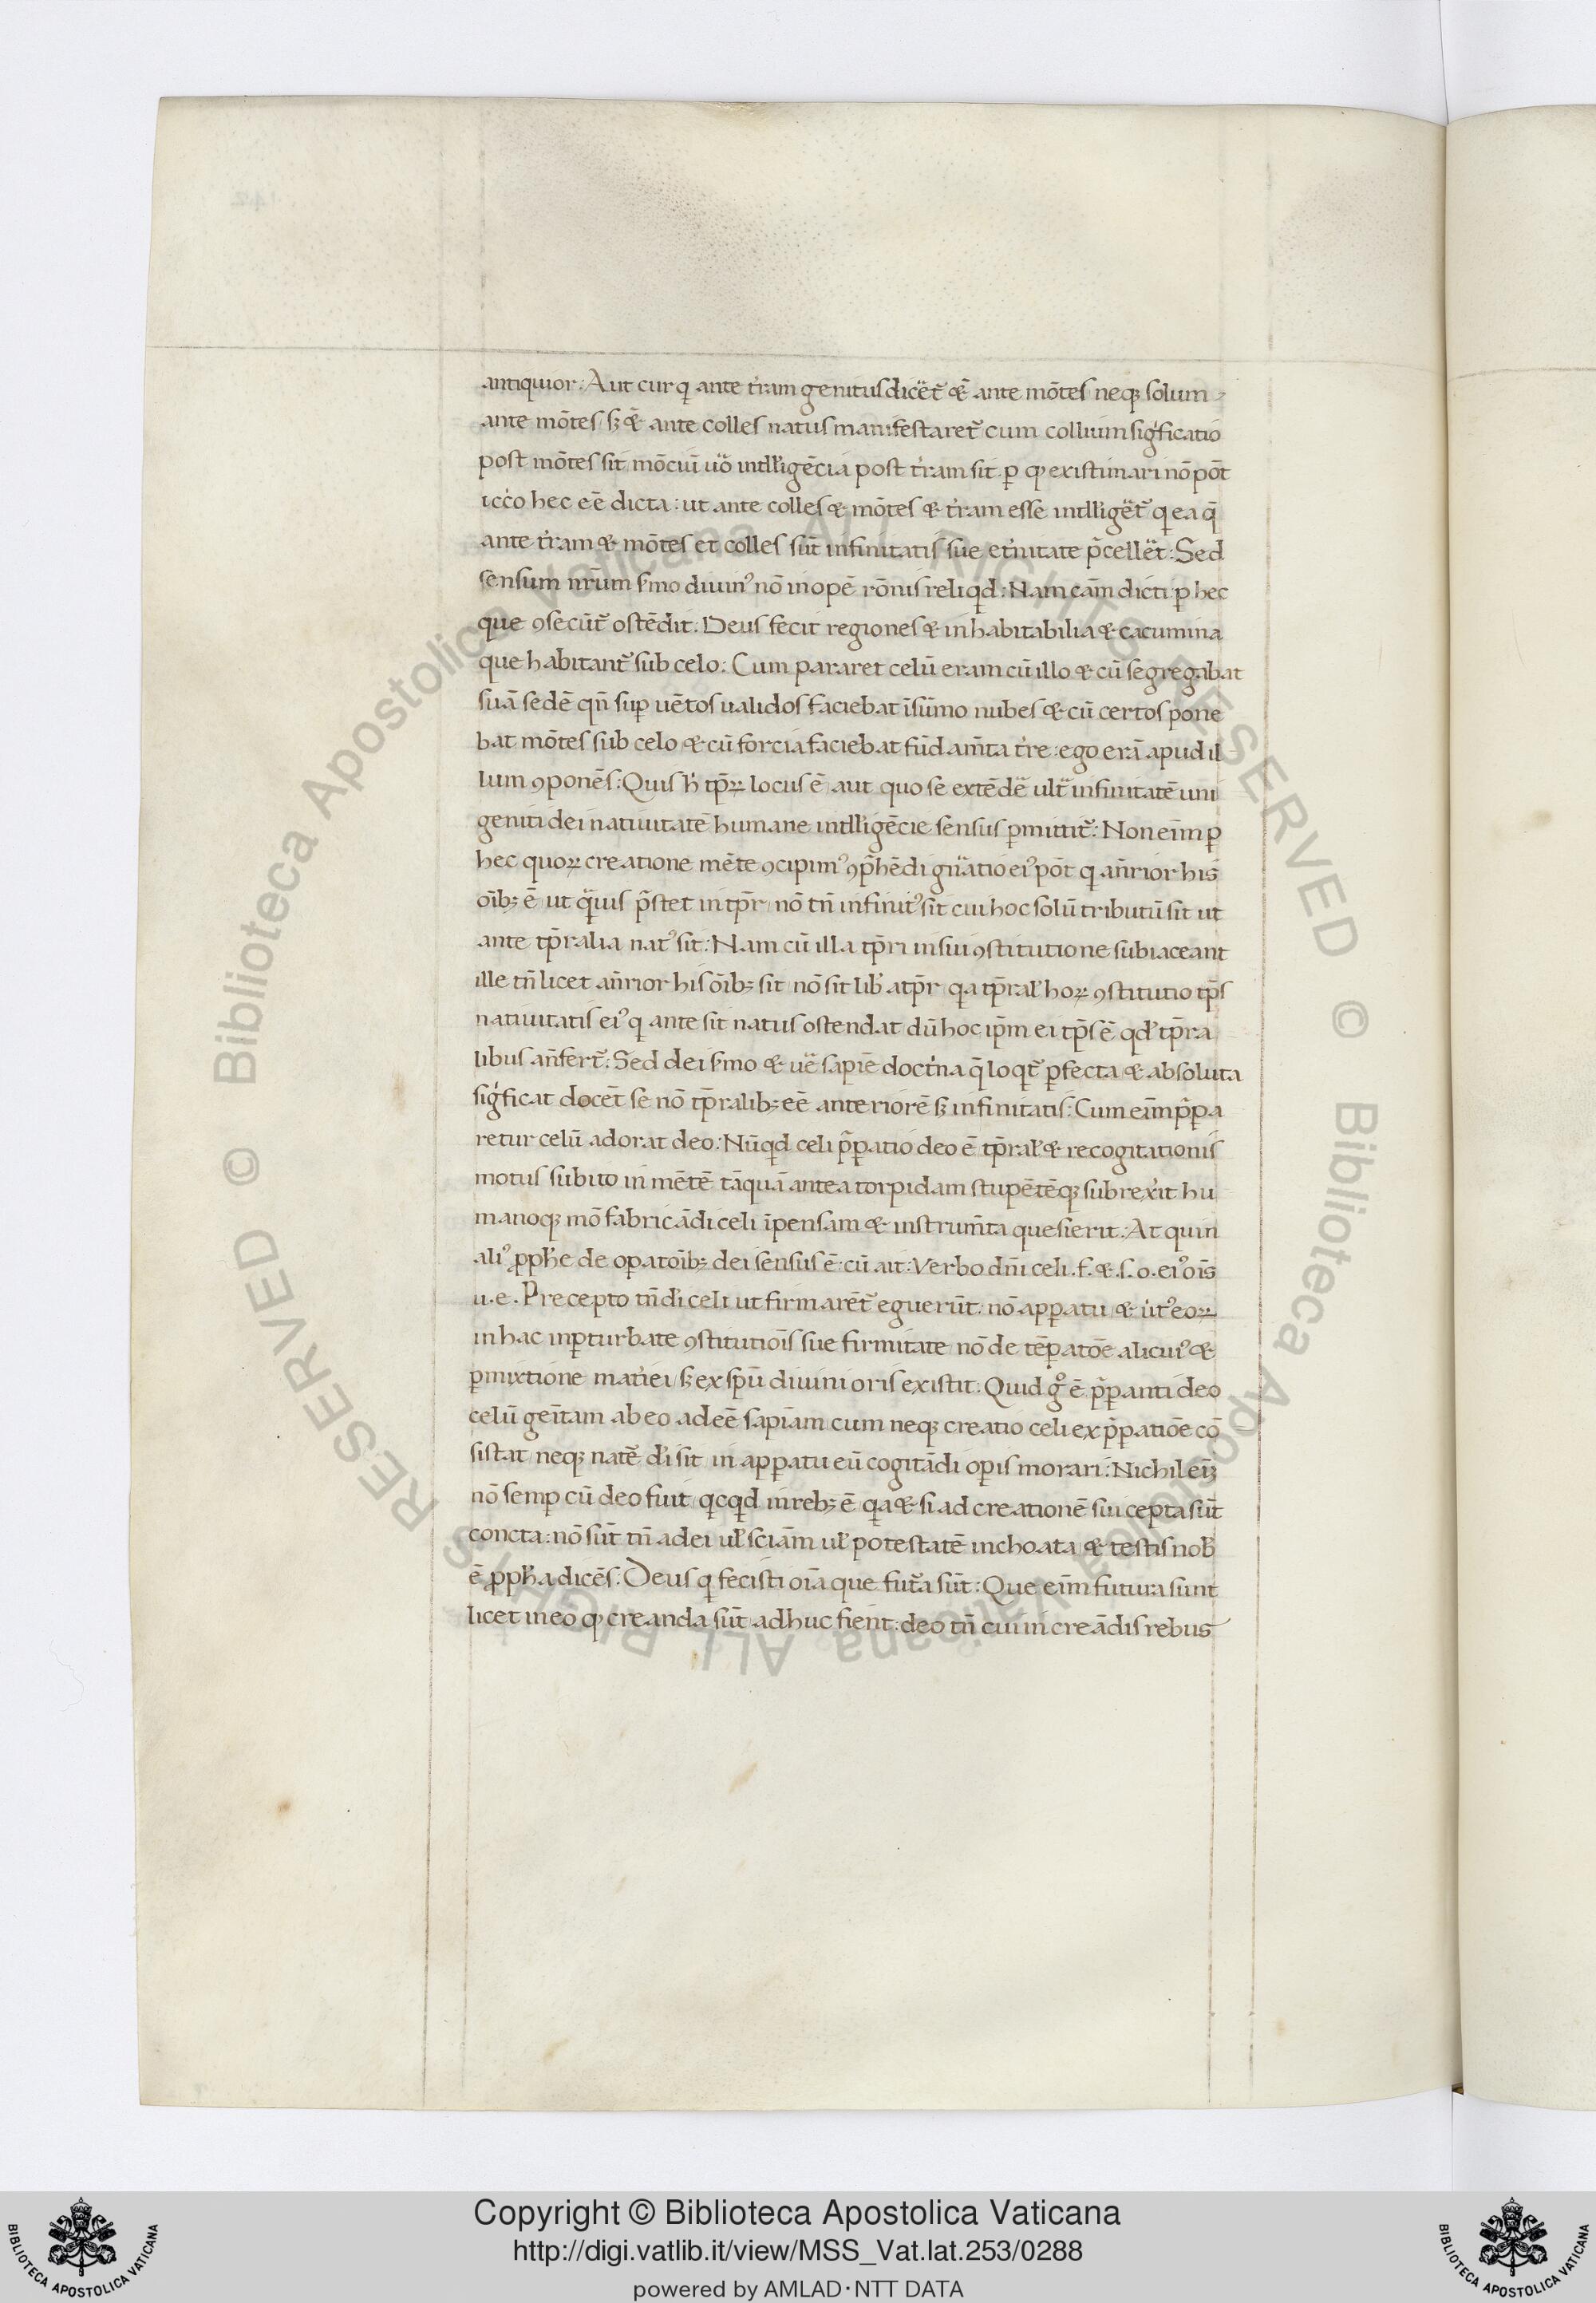 antiquior: Aut cur q̣ ante t̉ram genitus dicẽt᷑ & ̃ ante mōtes neqꝫ solum
ante mōtes sꝫ & ̃ ante colles natus manifestaret᷑ cum collium sig̉ficatio
post mōtes sit mōciū ũo intll̉igēcia post t̉ram sit. ꝑ ꝙ existimari nō pōt
icc̉o hec eē dicta: ut ante colles & mōtes & t̉ram esse intll̉igẽt᷑ q̣ ea q̄
ante t̉ram & mōtes et colles sūt infinitatis sue et̉nitate p̄cellẽt: Sed
sensum nr̄um s̉mo diuinꝰ nō inopē rōnis reliq̣d: Nam cām dicti ꝑ hec
que ꝯsecūt᷑ ostēdit. Deus fecit regiones & inhabitabilia & cacumina
que habitant᷑ sub celo: Cum pararet celū eram cū illo & cū segregabat
suā sedē qn̄ suꝑ uētos ualidos faciebat ī sūmo nubes & cū certos pone
bat mōtes sub celo & cū forcia faciebat fūdam̄ta t̉re: ego erā apud il
lum ꝯponēs: Quis h̉ tp̄rꝫ locus ē aut quo se extēdẽ ult̃ infinitatē uni
geniti dei natiuitatē humane intll̉igēcie sensus ꝑmittit᷑: Non eīm ꝑ
hec quorꝫ creatione mēte ꝯcipimꝰ ꝯp̄hēdi gn̄atio eiꝰ pōt q̣ an̄rior his
oībꝫ ē ut q̃uis p̄stet in tp̄r nō tn̄ infinitꝰ sit cui hoc solū tributū sit ut
ante tp̄ralia natꝰ sit: Nam cū illa tp̄ri in sui ꝯstitutione subiaceant
ille tn̄ licet an̄rior his oībꝫ sit nō sit lib̉ a tp̄r q̣a tp̄ral̉ horꝫ ꝯstitutio tp̄s
natiuitatis eiꝰ q̣ ante sit natus ostendat dū hoc ip̄m ei tp̄s ē qd̉ tp̄ra
libus an̄fert᷑: Sed dei s̉mo & uẽ sapiē doct̉na q̄ loq̣t᷑ ꝑfecta & absoluta
sig̉ficat docēt se nō tp̄ralibꝫ eē anteriorē sꝫ infinitatis: Cum eīm p̄ꝑa
retur celū aderat deo: Nūq̣d celi p̄ꝑatio deo ē tp̄ral̉ & recogitationis
motus subito in mētē tāquā antea torpidam stupētēqꝫ subrex̉it hu
manoqꝫ mō fabricādi celi īpensam & instrum̄ta quesierit. At quin
aliꝰ ꝓph̉e de oꝑatoībꝫ dei sensus ē: cū ait: Verbo dn̄i celi .f. & .s. o. eiꝰ oīs
u. e. Precepto tn̄ di celi ut firmarēt᷑ eguerūt: nō apꝑatu & u̇tꝰ eorꝫ
in hac inꝑturbate ꝯstitutiōis sue firmitate nō de tēꝑatōe alicuiꝰ &
ꝑmixtione mat̉iei sꝫ ex sp̄u diuini oris existit: Quid g̊ ē p̄ꝑanti deo
celū geītam ab eo adeē sapiām cum neqꝫ creatio celi ex p̄ꝑatiōe cō
sistat neqꝫ natē d̉i sit in apꝑatu eū cogitādi oꝑis morari: Nichil eīꝫ
nō semꝑ cū deo fuit q̣cq̣d in rebꝫ ē q̣a & si ad creationē sui cepta sūt
concta: nō sūt tn̄ a dei ul̉ sciām ul̉ potestatē inchoata & testis nob̉
ē ꝓph̉a dicēs: Deus q̣ fecisti oīa que fut᷑a sūt: Que eīm futura sunt
licet in eo ꝙ creanda sūt adhuc fient: deo tn̄ cui in creādis rebus
© Biblioteca Apostolica Vaticana ALL RIGHTS RESERVED © Biblioteca Apostolica Vaticana ALL RIGHTS RESERVED
Copyright © Biblioteca Apostolica Vaticana
http://digi.vatlib.it/view/MSS_Vat.lat.253/0288
powered by AMLAD·NTT DATA
BIBLIOTECA APOSTOLICA VATICANA
BIBLIOTECA APOSTOLICA VATICANA